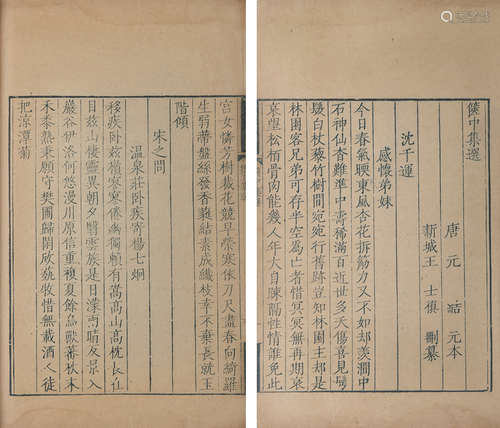 篋中集選
唐 元 結 元本
新城王 士禛 刪纂
沈千運
感懷弟妹
今日春氣暖東風杏花拆筋力又不如却羨澗中
石神仙杳難準中壽稀滿百近世多夭傷喜見
髮白杖藜竹樹間宛宛行舊跡豈知林園主却是
林園客兄弟可存半空為亡者惜冥冥無再期哀
哀望松栢骨肉能幾人年大自疎隔性情誰免此
宮女憐芳樹裁花競早榮寒依刀尺盡春向綺羅
生弱蒂盤絲發香蕤結素成纖枝幸不棄長就玉
階傾
宋之問
溫泉莊卧疾寄楊七炯
移疾卧兹嶺寥寥倦幽獨頼有嵩高山高枕長在
目兹山棲靈異朝夕翳雲族是日濛雨晴返景入
巖谷伊洛何悠漫川原信重複夏餘鳥獸蕃秋末
禾黍熟秉願守樊圃歸閑欣蓺牧惜無載酒人徒
把涼潭菊